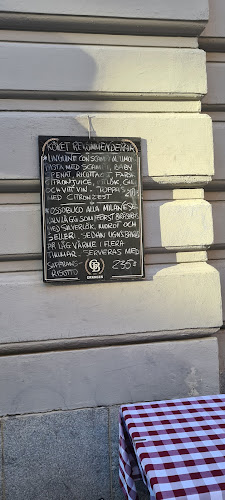 KÖKET REKOMMENDERAR
LINGUINE CON SCAMPI ALLIMONE
PASTA MED SCAMPI, BABY
SPENAT, RICOTTAOST, FÄRSK
CITRONJUICE, VITLÖK, CHILI
OCH VITT VIN. TOPPAS
MED CITRONZEST
OSSOBUCO ALLA MILANESE
KALVLÄGG SOM FÖRST BRÄSERAS
MED SILVERLÖK, MOROT OCH
SELLERI SEDAN UGNSBAKAS
PÅ LÅG VÄRME I FLERA
TIMMAR. SERVERAS MED
SAFFRANS-
RISOTTO 235:-